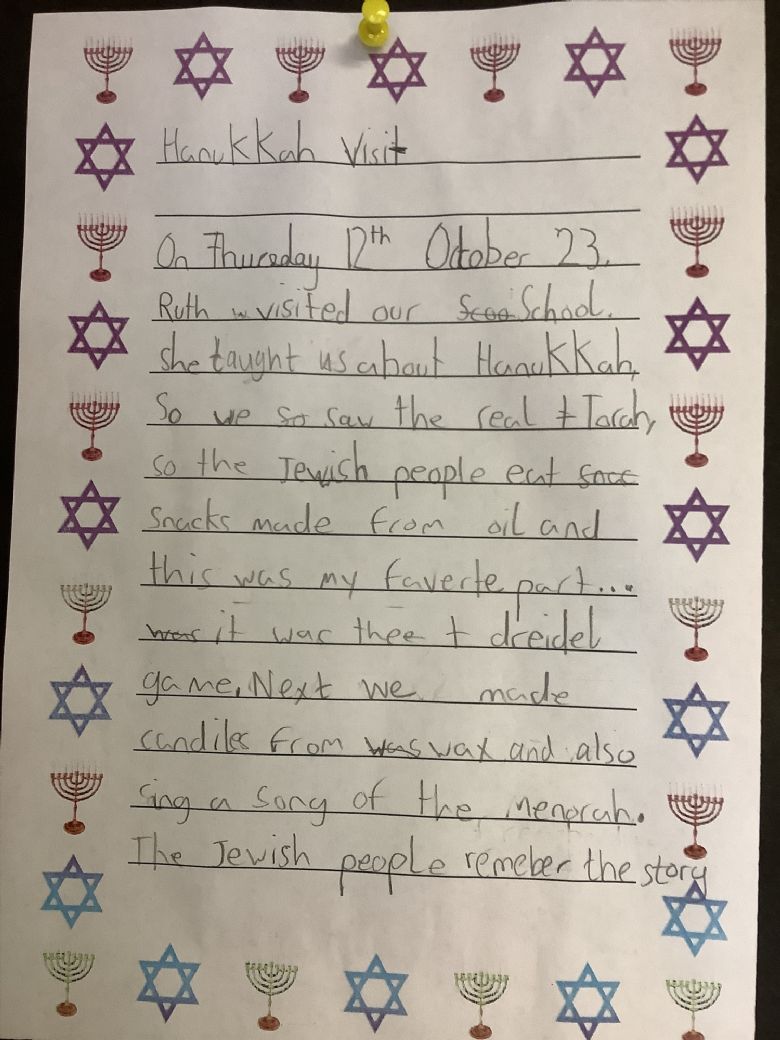 Hanukkah Visit
On Thuresday 12th October 23.
Ruth w visited our Scoo School.
she taught us about Hanukkah,
So we so saw the real t Torah,
so the Jewish people eat snac
snacks made from oil and
this was my faverte part...
was it was thee t dreidel
game. Next we made
candiles from was wax and also
sing a song of the Menorah.
The Jewish people remeber the story